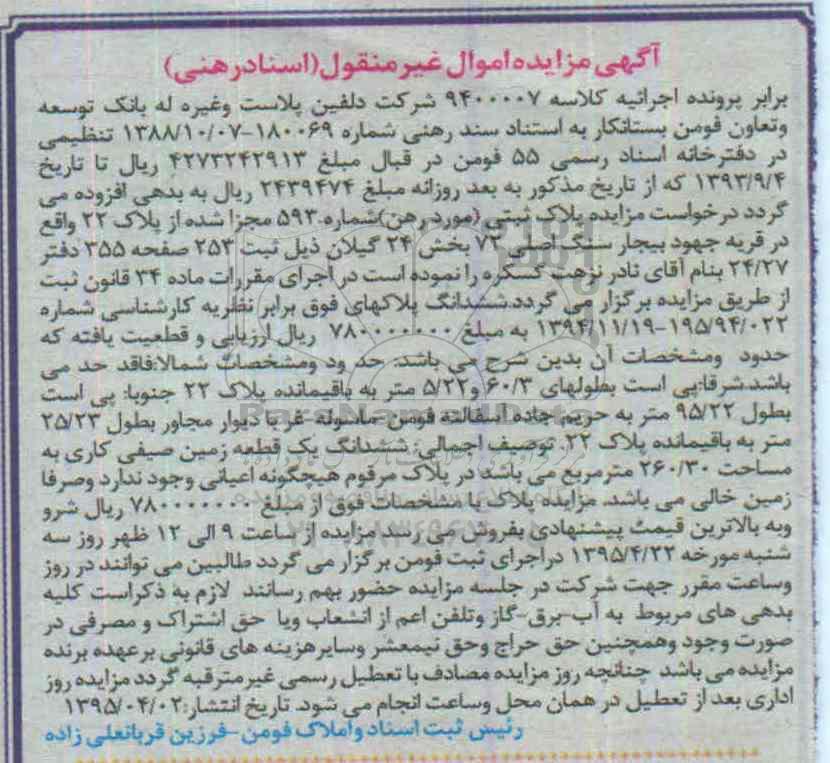 آگهی مزایده اموال غیر منقول (اسناد رهنی)
برابر پرونده اجرائیه کلاسه ۹۴۰۰۰۰۷ شرکت دلفین پلاست وغیره له بانک توسعه
وتعاون فومن بستانکار به استناد سند رهنی شماره ۱۸۰۰۶۹-۱۳۸۸/۱۰/۰۷ تنظیمی
در دفترخانه اسناد رسمی ۵۵ فومن در قبال مبلغ ۴۲۷۳۲۴۲۹۱۳ ریال تا تاریخ
۱۳۹۳/۹/۴ که از تاریخ مذکور به بعد روزانه مبلغ ۲۴۳۹۴۷۴ ریال به بدهی افزوده می
گردد درخواست مزایده پلاک ثبتی (مورد رهن)شماره.۵۹۳ مجزا شده از پلاک ۲۲ واقع
در قریه جهود بیجار سنگ اصلی ۷۲ بخش ۲۴ گیلان ذیل ثبت ۲۵۳ صفحه ۳۵۵ دفتر
۲۴/۲۷ بنام آقای نادر نزهت کسکره را نموده است در اجرای مقررات ماده ۳۴ قانون ثبت
از طریق مزایده برگزار می گردد.ششدانگ پلاکهای فوق برابر نظریه کارشناسی شماره
۱۹۵/۹۴/۰۲۲-۱۳۹۴/۱۱/۱۹ به مبلغ ۷۸۰۰۰۰۰۰۰ ریال ارزیابی و قطعیت یافته که
حدود ومشخصات آن بدین شرح می باشد: حد ود ومشخصات شمالا:فاقد حد می
باشد.شرقا:پی است بطولهای ۶۰/۳ و۵/۲۲ متر به باقیمانده پلاک ۲۲ جنوبا: پی است
بطول ۹۵/۲۲ متر به حریم جاده آسفالته فومن-ماسوله-غربا دیوار مجاور بطول ۲۵/۲۳
متر به باقیمانده پلاک ۲۲. توصیف اجمالی: ششدانگ یک قطعه زمین صیفی کاری به
مساحت ۲۶۰/۳۰ مترمربع می باشد در پلاک مرقوم هیچگونه اعیانی وجود ندارد وصرفا
زمین خالی می باشد. مزایده پلاک با مشخصات فوق از مبلغ ۷۸۰۰۰۰۰۰۰ ریال شرو
وبه بالاترین قیمت پیشنهادی بفروش می رسد مزایده از ساعت ۹ الی ۱۲ ظهر روز سه
شنبه مورخه ۱۳۹۵/۴/۲۲ دراجرای ثبت فومن برگزار می گردد طالبین می توانند در روز
وساعت مقرر جهت شرکت در جلسه مزایده حضور بهم رسانند لازم به ذکراست کلیه
بدهی های مربوط به آب-برق-گاز وتلفن اعم از انشعاب ویا حق اشتراک و مصرفی در
صورت وجود وهمچنین حق حراج وحق نیمعشر وسایرهزینه های قانونی برعهده برنده
مزایده می باشد چنانچه روز مزایده مصادف با تعطیل رسمی غیرمترقبه گردد مزایده روز
اداری بعد از تعطیل در همان محل وساعت انجام می شود. تاریخ انتشار:۱۳۹۵/۰۴/۰۲
رئیس ثبت اسناد واملاک فومن-فرزین قربانعلی زاده